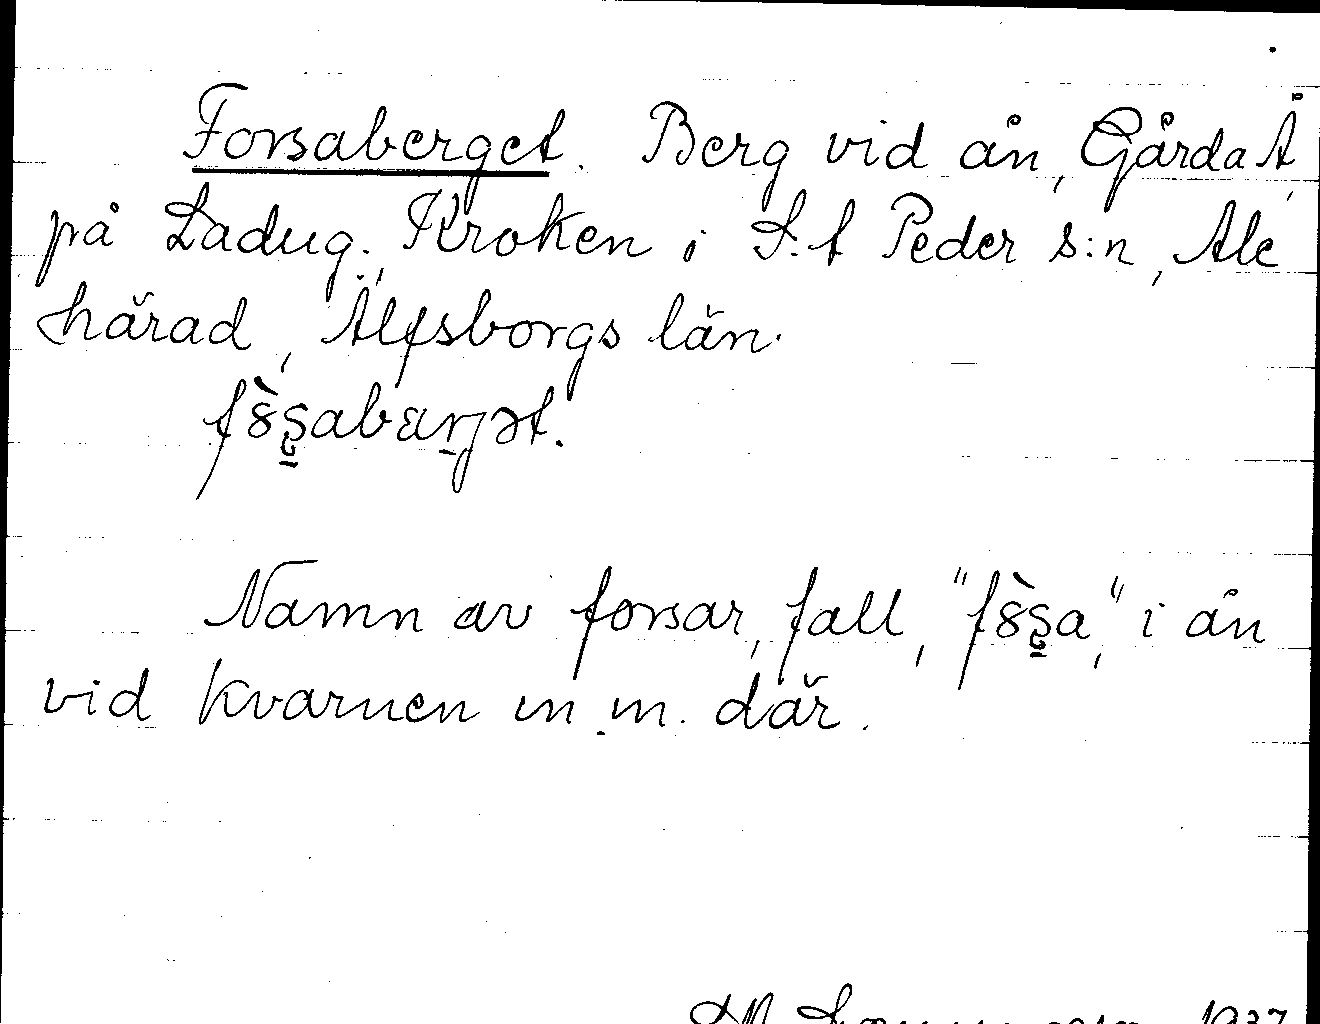 Forsaberget. Berg vid ån, Gårda Å,
på Ladug. Kroken i S:t Peder s:n, Ale
härad, Älfsborgs län.
Namn av forsar, fall, i ån
vid kvarnen m. m. där.
1937